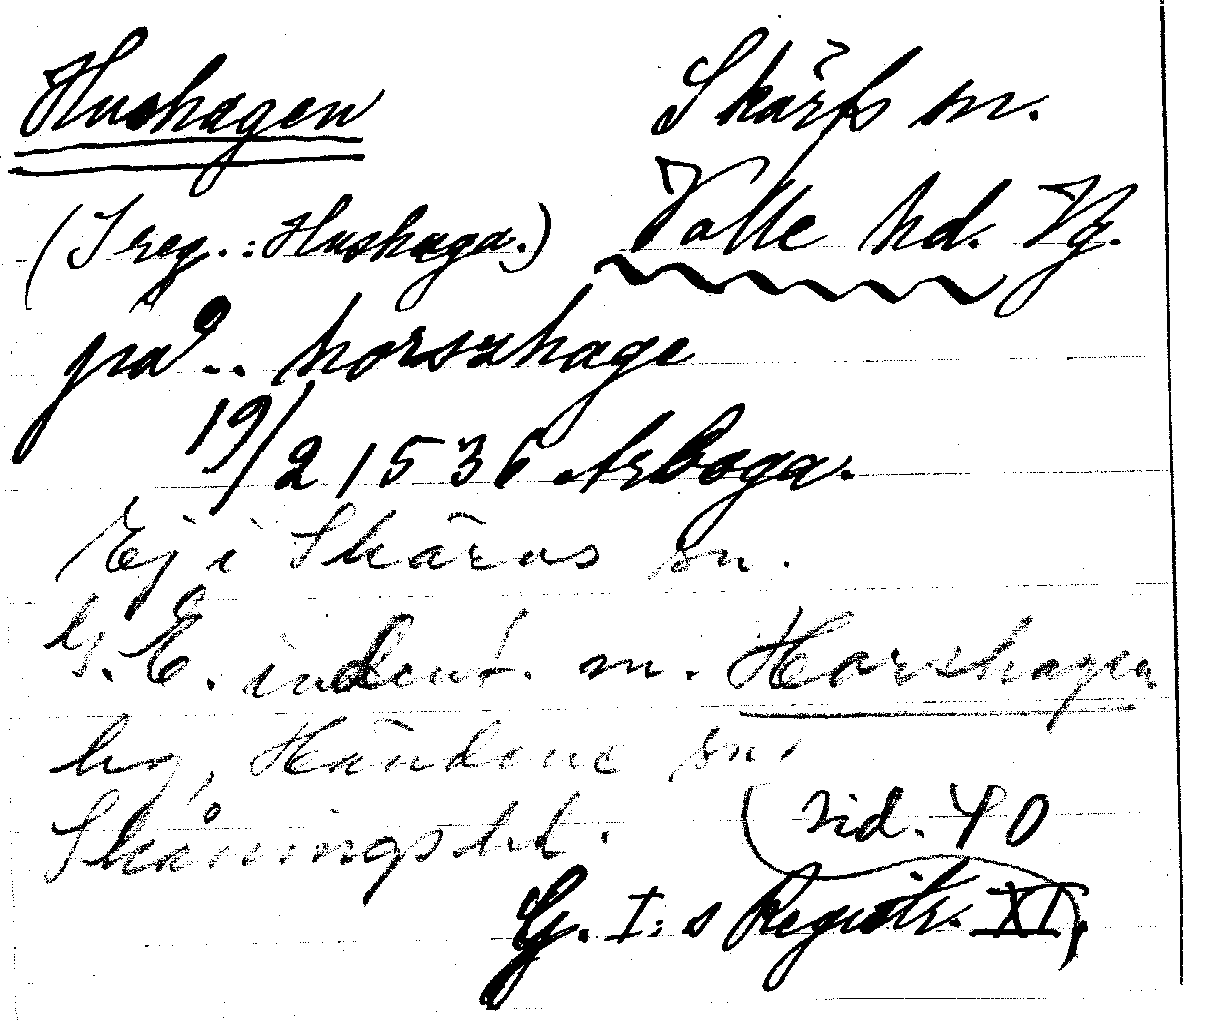 Hushagen
Skärfs sn.
(I reg.: Hushaga.)
Valle hd. Vg.
på .. horszhage
19/2 1536 Arboga.
Ej i Skärvs sn.
G. E. indent. m. Horshagen
by, Händene sn,
Skånings hd.
sid. 40
G. I:s Registr. XI,